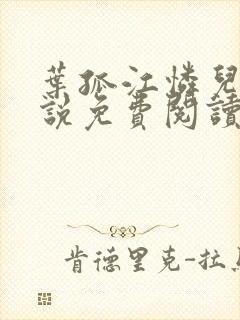 葉孤江憐兒
說免費閱讀
肯德里克-拉